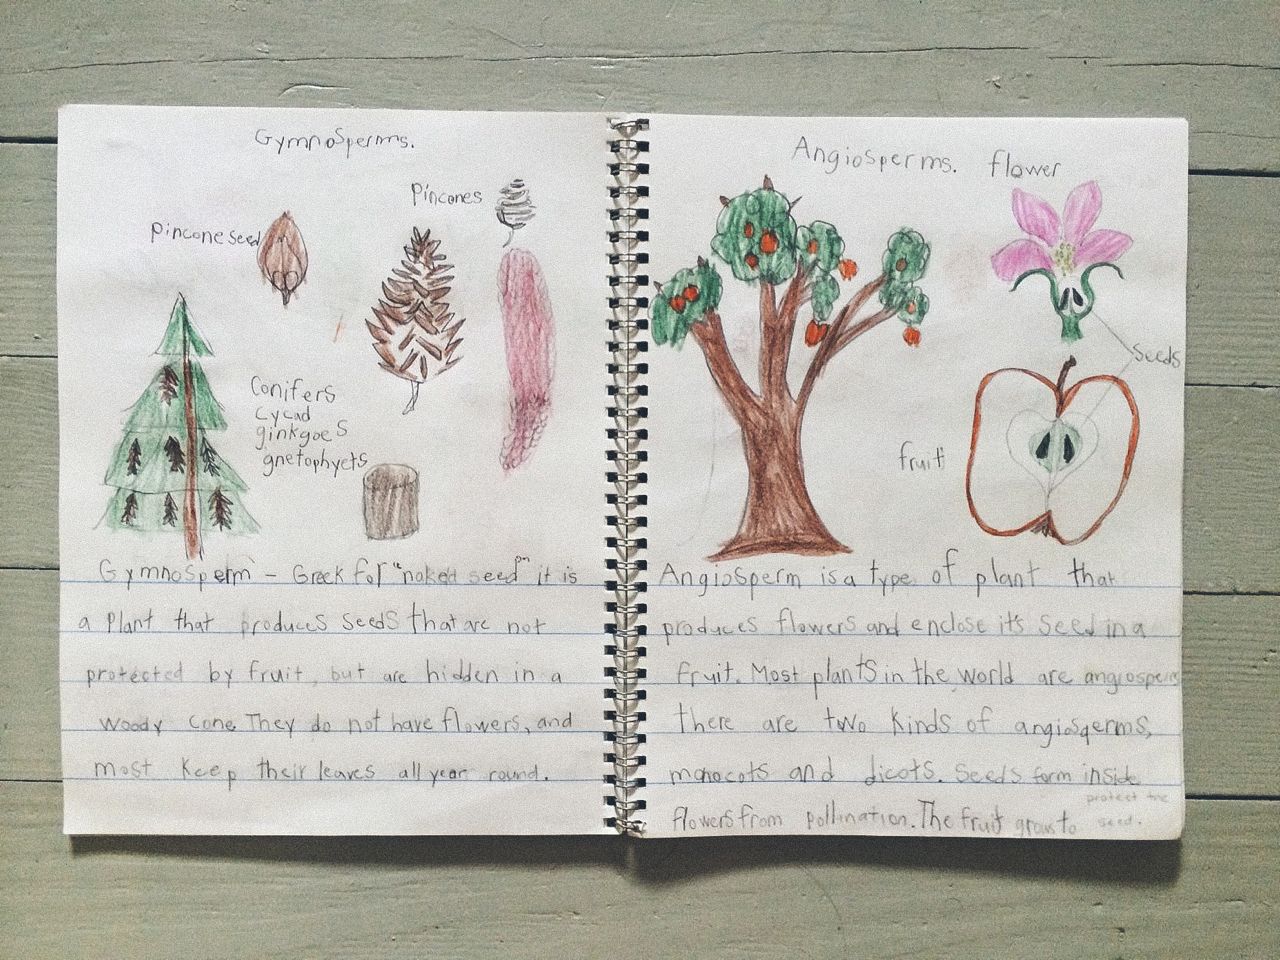 Gymnosperms.
Pincones
pinconeseed
Conifers
Cycad
ginkgoes
gnetophyets
Gymnosperm - Greek for "naked seed" it is
a plant that produces seeds that are not
protected by fruit, but are hidden in a
woody cone. They do not have flowers, and
most keep their leaves all year round.
Angiosperms. flower
Seeds
fruit
Angiosperm is a type of plant that
produces flowers and enclose it's seed in a
fruit. Most plants in the world are angiosperms
there are two kinds of angiosperms,
monocots and dicots. Seeds form inside
flowers from pollination. The fruit grows to
protect the
seed.